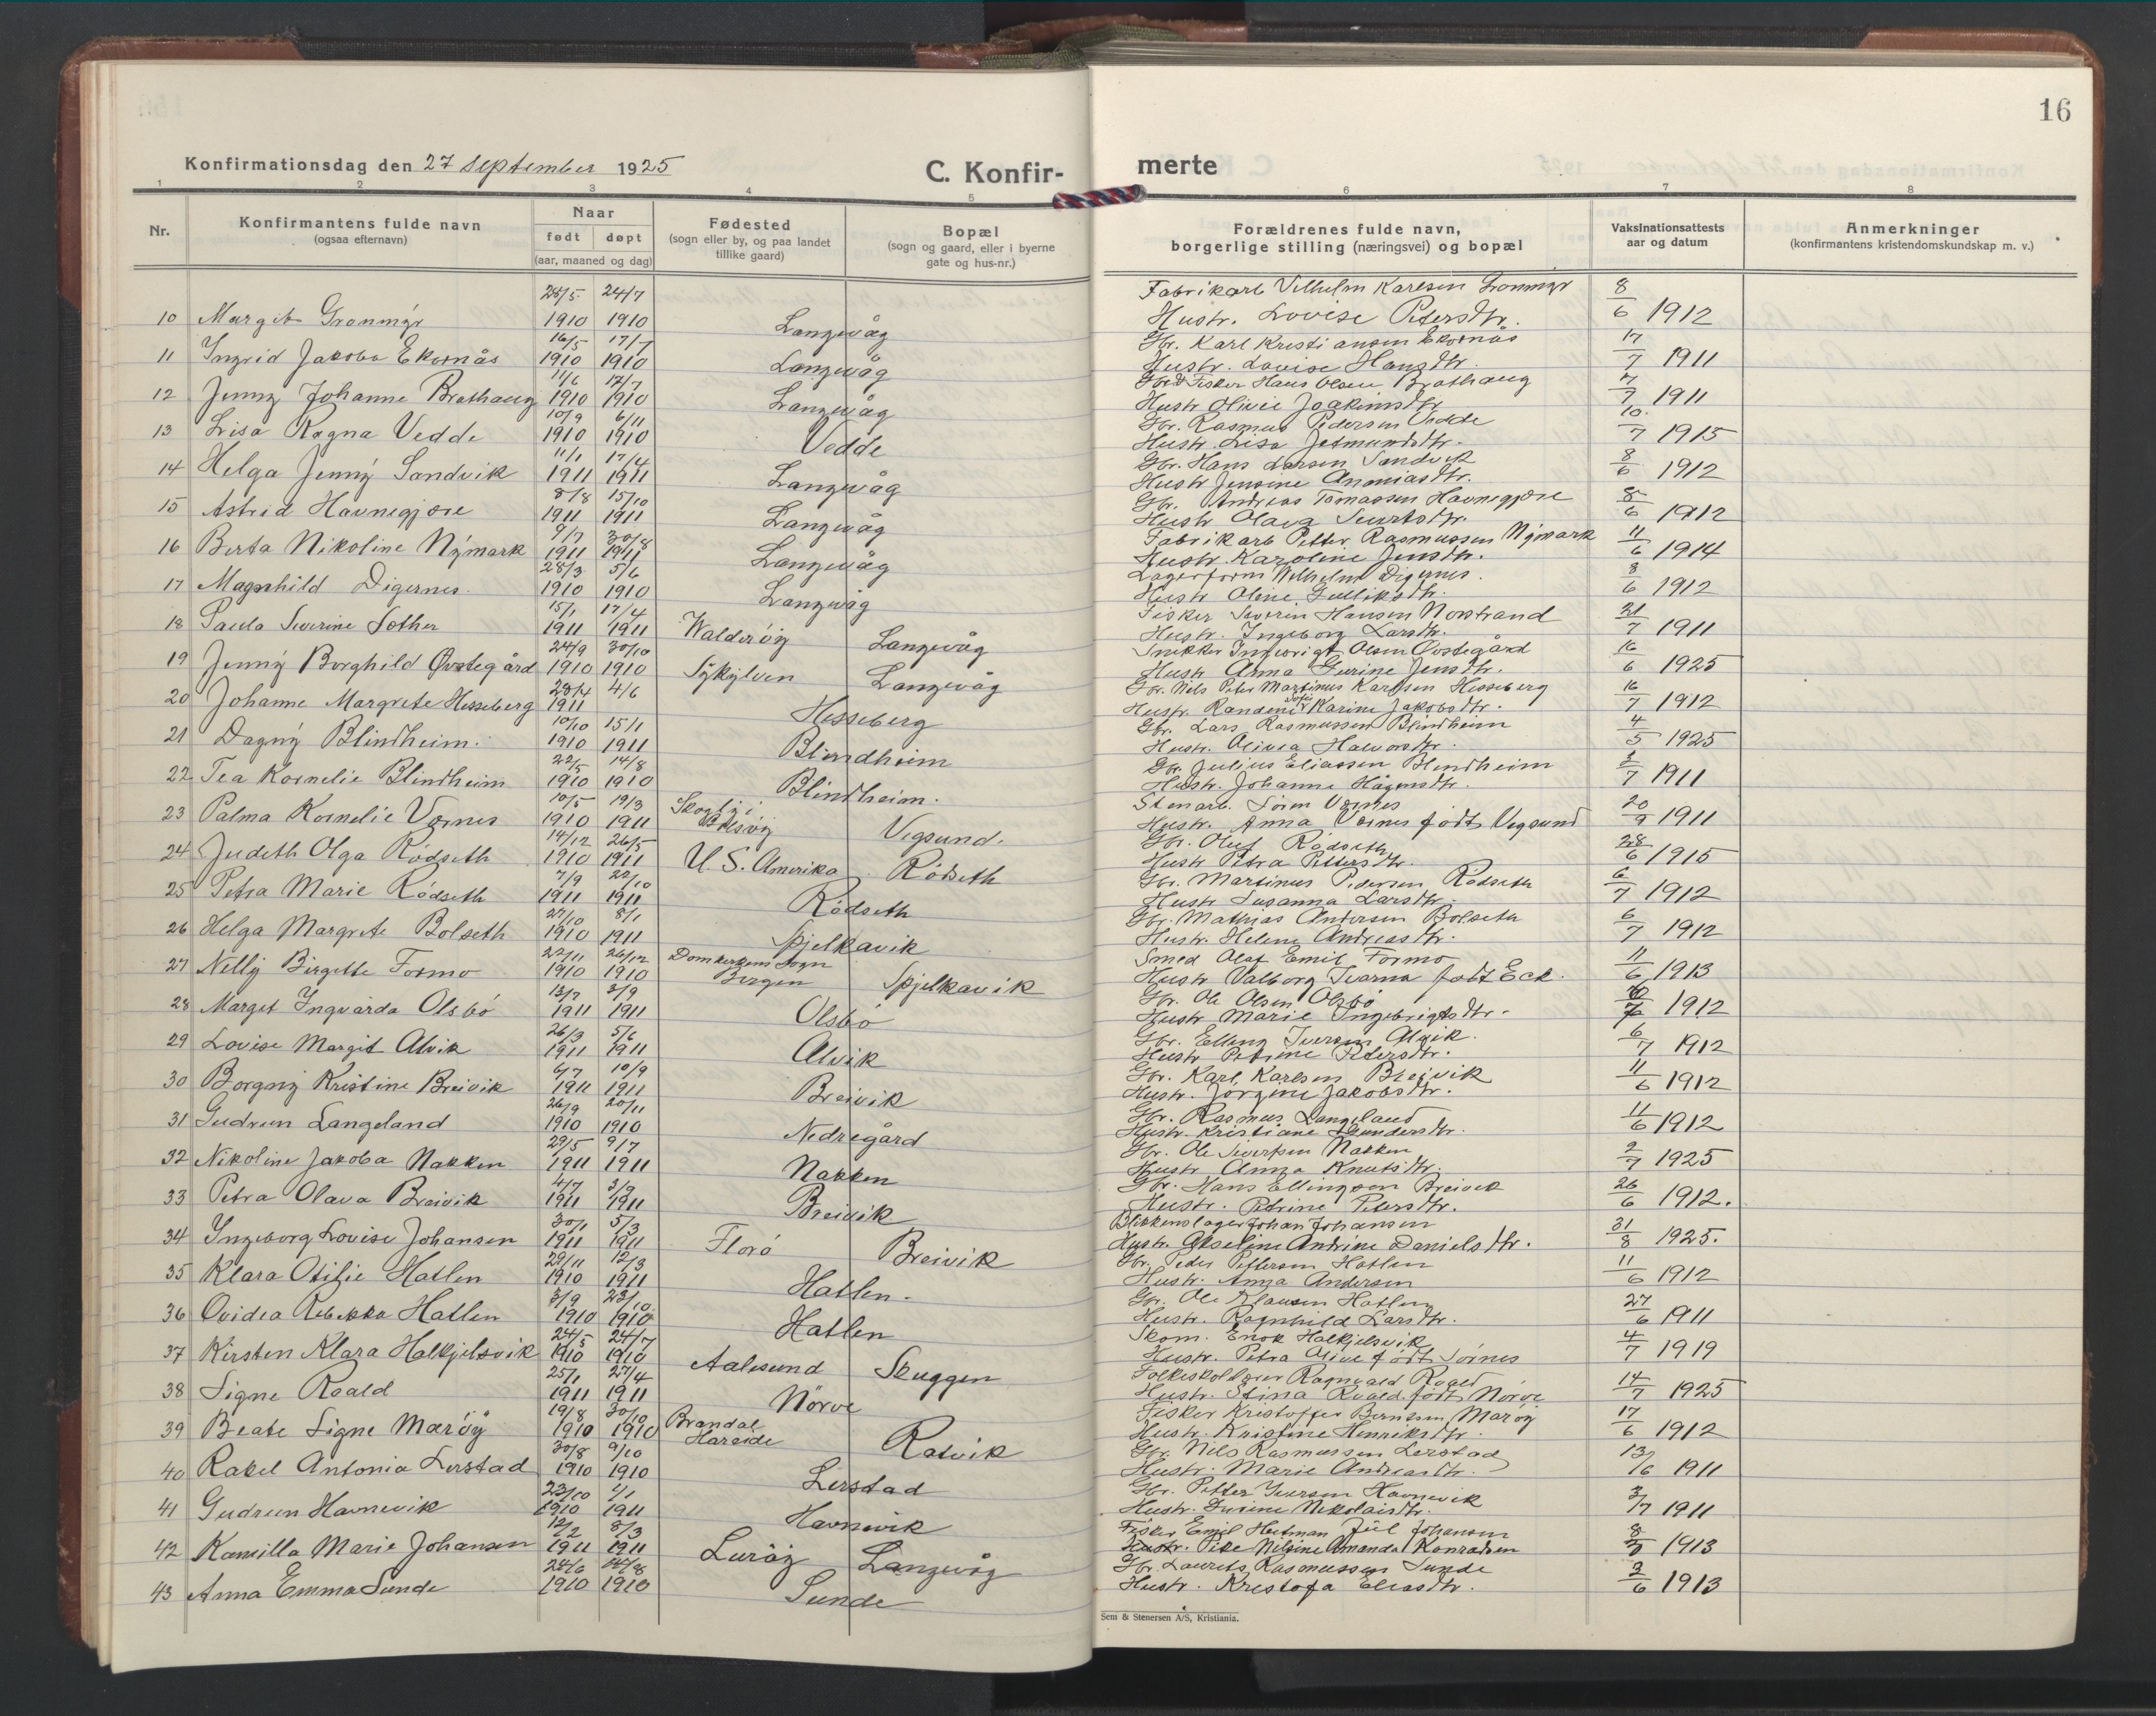 16
Konfirmationsdag den 27 september 1925
C. Konfir-
merte
1 2 3 4 5 6 7 8
Nr.
Konfirmantens fulde navn
(ogsaa efternavn)
Naar
født døpt
(aar, maaned og dag)
Fødested
(sogn eller by, og paa landet
tillike gaard)
Bopæl
(sogn og gaard, eller i byerne
gate og hus-nr.)
Forældrenes fulde navn,
borgerlige stilling (næringsvei) og bopæl
Vaksinationsattests
aar og datum
Anmerkninger
(konfirmantens kristendomskundskap m. v.)
28/5 24/7 Fabrikarb Vilhelm Karlsen Gronmyr
10 Margit Gronmyr 1910 1910 Langevåg Hustr. Lovise Petersdtr. 8/6 1912
16/5 17/7 Gbr. Karl Kristiansen Ekornås
11 Ingrid Jakoba Ekornås 1910 1910 Langevåg Hustr. Lovise Hansdtr. 17/7 1911
11/6 17/7 Gbr & Fisker Hans Olsen Brathaug
12 Jenny Johanne Brathaug 1910 1910 Langevåg Hustr Olivie Joakimsdtr 7/7 1911
10/9 6/11 Gbr. Rasmus Pedersen Vedde
13 Lisa Ragna Vedde 1910 1910 Vedde Hustr. Lisa Jetmundsdtr. 10/7 1915
11/1 17/4 Gbr. Hans Larsen Sandvik
14 Helga Jenny Sandvik 1911 1911 Langevåg Hustr Jensine Ananiasdtr. 8/6 1912
8/8 15/10 Gbr. Andreas Tomassen Havnegjøre
15 Astrid Havnegjøre 1911 1911 Langevåg Hustr Olava Sivertsdtr. 8/6 1912
9/7 30/8 Fabrikarb Petter Rasmussen Nymark
16 Berta Nikoline Nymark 1911 1911 Langevåg Hustr. Karoline Jensdtr. 11/6 1914
28/3 5/6 Lagerform Wilhelm Digernes.
17 Magnhild Digernes. 1910 1910 Langevåg Hustr Oline Gulliksdtr. 8/6 1912
15/1 17/4 Fisker Severin Hansen Norstrand
18 Paula Severine Sother 1911 1911 Walderøy Langevåg Hustr. Ingeborg Larsdtr. 21/7 1911
24/9 30/10 Snikker Ingebrigt Olsen Ovstegård
19 Jenny Borghild Øvstegård 1910 1910 Sykylven Langevåg Hustr Anna Gurine Jensdtr. 16/6 1925
28/4 4/6 Gbr. Nils Peter Martinus Karlsen Hesseberg
20 Johanne Margrete Hesseberg 1911 Hesseberg Hustr. Randene Sofie Karine Jakobsdtr. 16/7 1912
10/10 15/1 Gbr. Lars Rasmussen Blindheim
21 Dagny Blindheim. 1910 1911 Blindheim Hustr. Olivia Halvorsdtr. 4/5 1925
22/5 14/8 Gbr. Julius Eliassen Blindheim
22 Tea Kornelie Blindheim 1910 1910 Blindheim. Hustr. Johanne Hågensdtr. 3/7 1911
10/5 19/3 Stenarb. Sören Vørnes
23 Palma Kornelie Vørnes 1910 1911 Vegsund. Hustr. Anna Vørnes født Vegsund 20/9 1911
14/12 26/5 Gbr. Oluf Rödseth
24 Judith Olga Rödseth 1910 1911 U. S. Amerika Rödseth Hustr Petra Pettersdtr. 28/6 1915
7/9 22/10 Gbr. Martinus Pedersen Rödseth
25 Petra Marie Rödseth 1911 1911 Rödseth Hustr Susanna Larsdtr. 6/7 1912
27/10 8/1 Gbr. Mathias Andersen Bolseth
26 Helga Margrete Bolseth 1910 1911 Spjelkavik Hustr. Helene Andreasdtr. 6/7 1912
22/11 26/12 Domkirkens Sogn Smed Olaf Emil Formo
27 Nelly Birgitte Formo 1910 1910 Bergen Spjelkavik Hustr Valborg Ivarna født Eck. 11/6 1913
13/7 3/9 Gbr. Ole Olsen Olsbö
28 Marget Ingvarda Olsbö 1911 1911 Olsbö Hustr Marie Ingebrigtsdtr. 1912
26/3 5/6 Gbr. Elling Iversen Alvik.
29 Lovise Margit Alvik 1911 1911 Alvik Hustr Petrine Petersdtr. 6/7 1912
6/7 10/9 Gbr. Karl Karlsen Breivik
30 Borgny Kristine Breivik 1911 1911 Breivik Hustr. Jörgine Jakobsdtr. 11/6 1912
26/9 20/11 Gbr. Rasmus Langeland
31 Gudrun Langeland 1910 1910 Nedregård Hustr. Kristiane Gundersdtr. 11/6 1912
29/5 9/7 Gbr. Ole Sivertsen Nakken
32 Nikoline Jakoba Nakken 1911 1911 Nakken Hustr Anna Knutsdtr. 2/7 1925
4/7 3/9 Gbr. Hans Ellingsen Breivik
33 Petra Olava Breivik 1911 1911 Breivik Hustr. Petrine Petersdtr. 26/6 1912.
30/1 5/3 Blikkenslager Johan Johansen
34 Ingeborg Lovise Johansen 1911 1911 Florö Breivik Hustr. Andrine Danielsdtr. 31/8 1925.
29/11 12/3 Gbr. Peder Pettersen Hatlen
35 Klara Otilie Hatlen 1910 1911 Hatlen. Hustr. Anna Andersen 11/6 1912
3/9 23/10 Gbr. Ole Klausen Hatlen
36 Ovidia Rebekka Hatlen 1910 1910 Hatlen Hustr. Ragnhild Larsdtr. 27/6 1911
24/5 24/7 Skom. Enok Halkjelsvik
37 Kirsten Klara Halkjelsvik 1910 1910 Aalesund Skuggen Hustr. Petra Oline født Sörnes 4/7 1919
25/1 27/4 Folkeskolelærer Ragnvald Roald
38 Signe Roald 1911 1911 Nörve Hustr. Stina Roald født Nörve 14/7 1925
19/8 30/10 Brandal Fisker Kristoffer Berntsen Maröy
39 Beate Signe Maröy 1910 1910 Hareide Ratvik Hustr. Kristine Henriksdtr. 17/6 1912
30/8 9/10 Gbr. Nils Rasmussen Lerstad
40 Rakel Antonia Lerstad 1910 1910 Lerstad Hustr. Marie Andreasdtr. 13/6 1911
23/10 1/1 Gbr. Petter Iversen Havnevik
41 Gudrun Havnevik 1910 1911 Havnevik Hustr. Nikolaisdtr. 3/7 1911
12/2 8/3 Fisker Emil Hartman Juel Johansen
42 Kamilla Marie Johansen 1911 1911 Luröy Langevåg Hustr. Pike Nilsine Amanda Konradsen 1913
24/6 14/8 Gbr. Laurits Rasmussen Sunde
43 Anna Emma Sunde 1910 1910 Sunde Hustr. Kristofa Eliasdtr. 2/6 1913
Sem & Stenersen A/S, Kristiania.